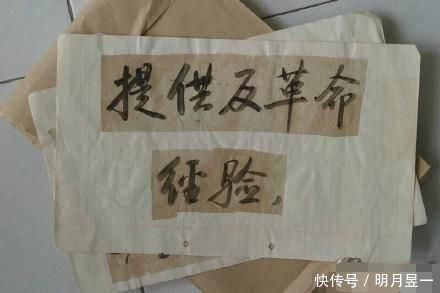 提供反革命
经验，
快传号 / 明月昱一